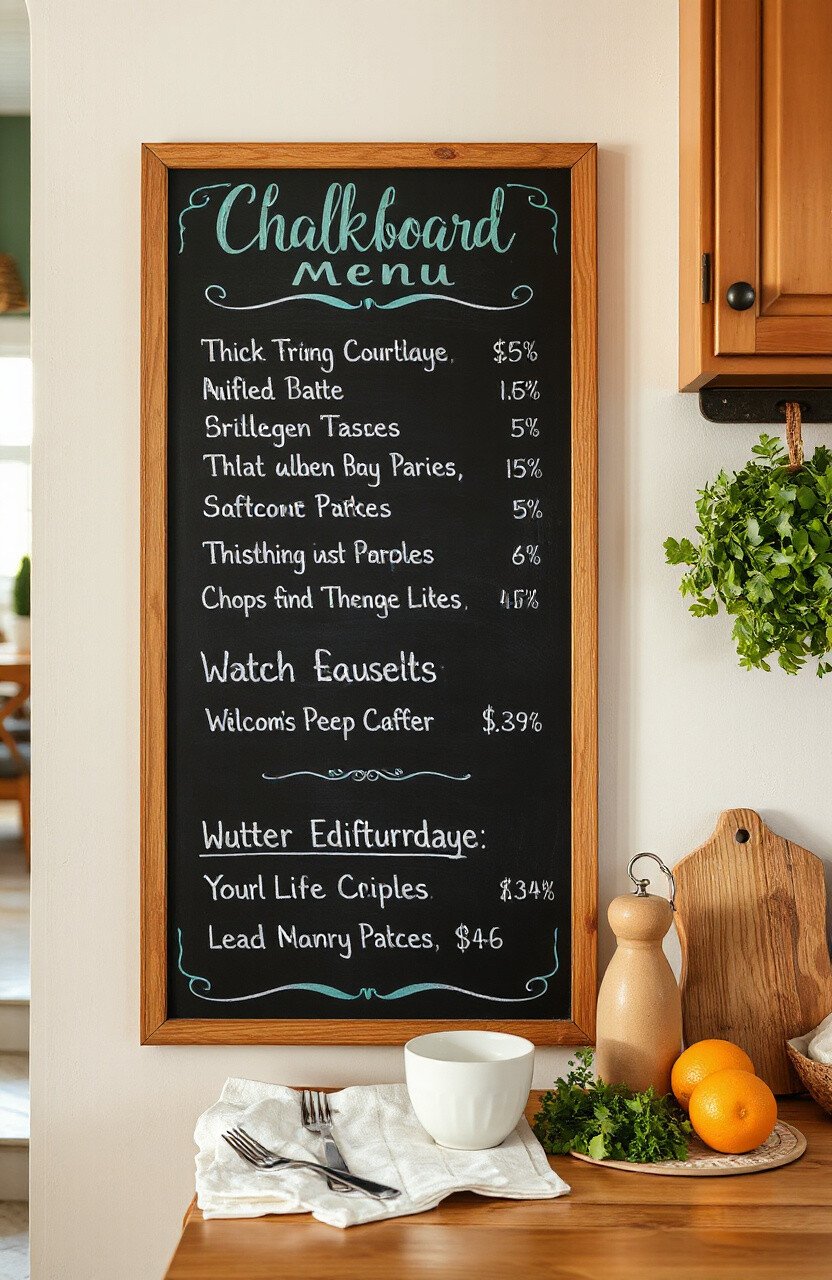 Chalkboard
Menu
Thick Triing Courtlaye, $5%
Nuifled Batte 1.5%
Sritlegen Tasces 5%
Thlat ulben Bay Paries, 15%
Saftcont Partces 5%
Thisthing ust Paroples 6%
Chops find Thenge Lites,
Watch Eauselts
Wilcom's Peep Caffer $.39%
Wutter Edifturrdaye:
Yourl Life Criples
Lead Manry Patces, $46